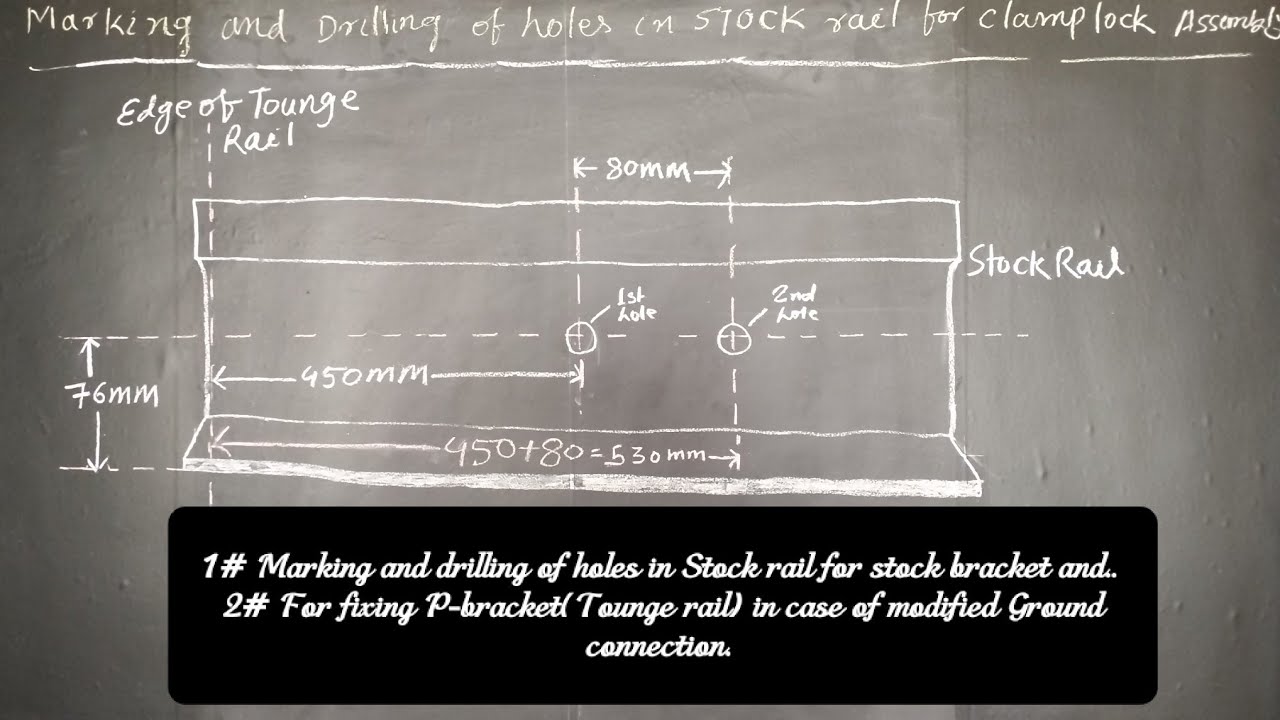 Marking and Drilling of holes in STOCK rail for clamplock Assembly
Edge of Tounge
Rail
80mm
Stock Rail
1st
hole
2nd
hole
450mm
76mm
450+80=530mm
1# Marking and drilling of holes in Stock rail for stock bracket and..
2# For fixing P-bracket( Tounge rail) in case of modified Ground
connection.